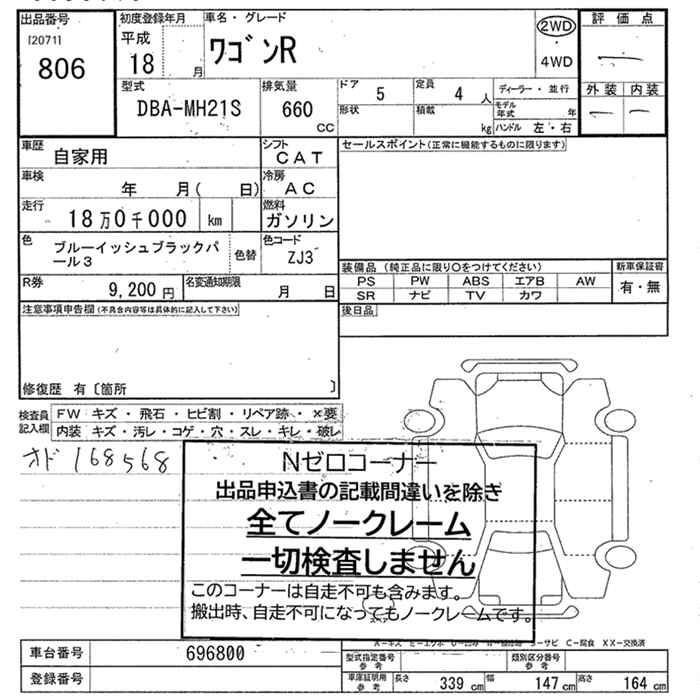 出品番号 初度登録年月 車名・グレード 2WD 評価点
[2071] 平成
806 18 月 ワゴンR 4WD 一
型式 排気量 ドア 5 定員 4 人 ディーラー・並行 外装 内装
DBA-MH21S 660 CC 形状 積載 kg モデル年式 年 一 一
ハンドル 左・右
車歴 自家用 シフト CAT セールスポイント(正常に機能するものに限ります)
車検 年 月( 日) 冷房 AC
走行 18万0千000 km 燃料 ガソリン
色 ブルーイッシュブラックパール3 色替 色コード ZJ3
装備品 (純正品に限り○をつけてください) 新車保証書
R券 9,200円 名変通知期限 月 日 PS PW ABS エアB AW 有・無
SR ナビ TV カワ
注意事項申告欄(不具合内容等は具体的に記入して下さい) 後日品
修復歴 有〔箇所 〕
検査員記入欄 FW キズ・飛石・ヒビ割・リペア跡・×要
内装 キズ・汚レ・コゲ・穴・スレ・キレ・破レ
オド 168568
Nゼロコーナー
出品申込書の記載間違いを除き
全てノークレーム
一切検査しません
このコーナーは自走不可も含みます。
搬出時、自走不可になってもノークレームです。
サビ C-腐食 XX-交換済
車台番号 696800 型式指定番号 参考 類別区分番号 参考
登録番号 車庫証明用 参考 長さ 339 cm 幅 147 cm 高さ 164 cm